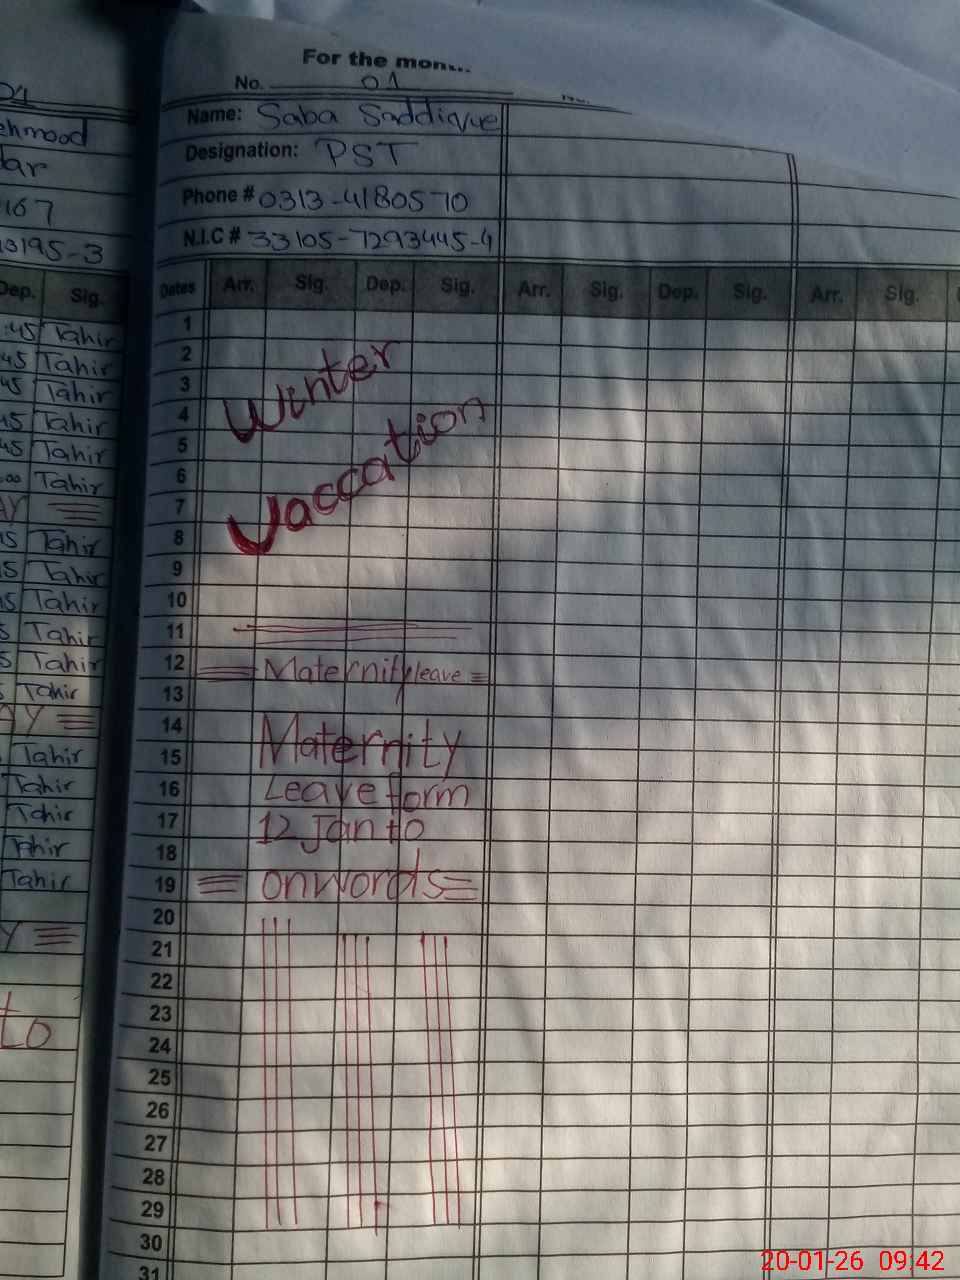 01
ehmood
dar
167
13195-3
Dep. Sig.
:45 Tahir
45 Tahir
45 Tahir
45 Tahir
45 Tahir
:00 Tahir
AY
15 Tahir
15 Tahir
15 Tahir
5 Tahir
5 Tahir
Tahir
AY
Tahir
Tahir
Tahir
Tahir
Tahir
Y
to
For the mon
No. 01
Name: Saba Saddique
Designation: PST
Phone # 0313-4180570
N.I.C # 33105-7293445-4
Dates Arr. Sig. Dep. Sig. Arr. Sig. Dep. Sig. Arr. Sig.
1
2
Winter
3
4
5
Vaccation
6
7
8
9
10
11
12 Maternity leave
13
14
15 Maternity
16 Leave form
17 12 Jan to
18
19 onwords
20
21
22
23
24
25
26
27
28
29
30
31
20-01-26 09:42